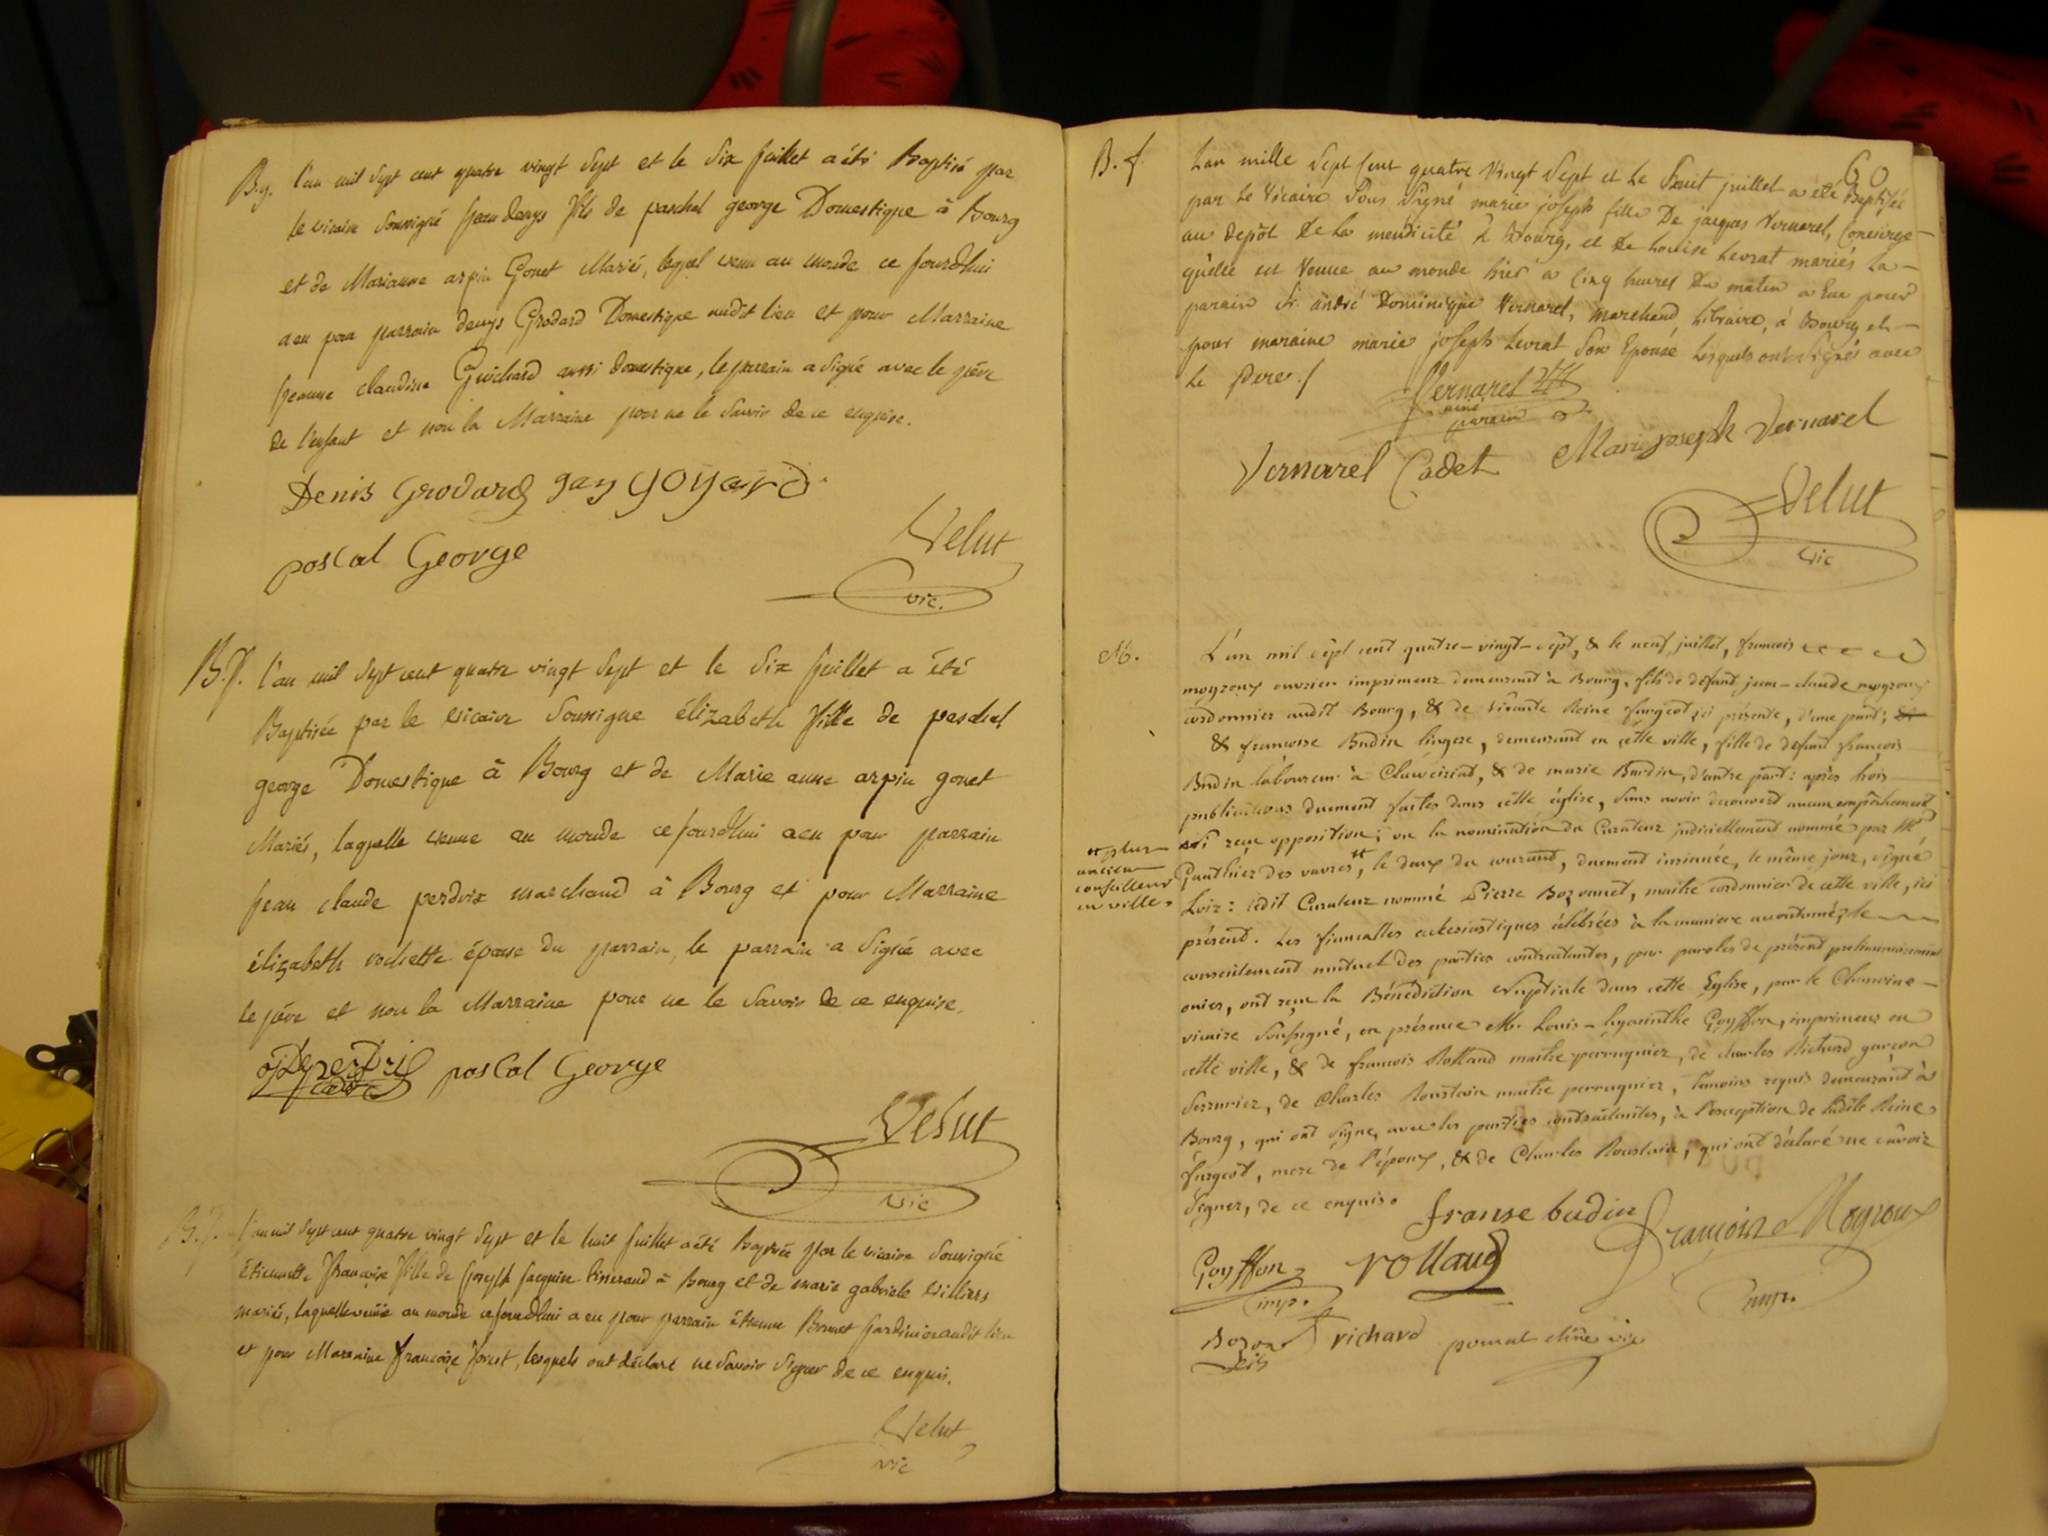 B.g. l'an mil sept cent quatre vingt sept et le six juillet a été Baptisé par
le vicaire soussigné jean denys fils de paschal george Domestique à Bourg
et de Marianne arpin Gonet Mariés, lequel venu au monde ce jourdhui
a eu pour parrain denys Grodard Domestique audit lieu et pour Marraine
jeanne claudine Guichard aussi domestique, le parrain a signé avec le père
de l'enfant et non la Marraine pour ne le savoir de ce enquise.
Denis Grodard gay goyard
pascal George
Velut
vic.
B.f. l'an mil sept cent quatre vingt sept et le six juillet a été
Baptisée par le vicaire soussigné élizabeth fille de paschal
george Domestique à Bourg et de Marie anne arpin gonet
Mariés, laquelle venue au monde ce jourdhui a eu pour parrain
jean claude perdrix marchand à Bourg et pour Marraine
élizabeth épouse du parrain, le parrain a signé avec
le père et non la Marraine pour ne le savoir de ce enquise.
pascal George
Velut
vic
B.f. l'an mil sept cent quatre vingt sept et le huit juillet a été baptisée par le vicaire soussigné
Etiennette françoise fille de joseph jacquier tisserand à Bourg et de marie gabriele villiers
mariés, laquelle venüe au monde ce jourdhui a eu pour parrain étienne Bonnet jardinier audit lieu
et pour Marraine françoise forest, lesquels ont déclaré ne savoir signer de ce enquis.
Velut
vic
60
B. f. L'an mille sept cent quatre vingt sept et le huit juillet a été Baptisée
par le vicaire sous signé marie joseph fille De jacques Vernarel, Concierge
au depôt de la mendicité à Bourg, et de Louise Levrat mariés la
quelle est venue au monde hier a cinq heures du matin a eue pour
parain Sr. andré Dominique Vernarel, marchand Libraire, à Bourg et
pour maraine marie joseph Levrat son Epouse lesquels ont signés avec
le pere./
Vernarel
ainé
parain
Vernarel Cadet Marie joseph Vernarel
Velut
vic
M. L'an mil sept cent quatre-vingt-sept, & le neuf juillet, francois
moyroux ouvrier imprimeur demeurant à Bourg, fils de défunt jean-claude moyroux
cordonnier audit Bourg, & de vivante Reine furgeot, ici présente, d'une part;
& françoise Budin lingere, demeurant en cette ville, fille de défunt françois
Budin laboureur à Chaveiriat, & de marie Bardin, d'autre part: après trois
publications duement faites dans cette église, sans avoir decouvert aucun empêchement
ni reçu opposition; vu la nomination du Curateur judiciellement nommé par Mr
Gauthier des vavres, le deux du courant, duement insinuée, le même jour, signé
plus
ancien
conseiller
en ville.
Loix: ledit Curateur nommé Pierre Bozonnet, maitre cordonnier de cette ville, ici
présent. Les fiancailles ecclesiastiques célébrées à la maniere accoutumée; le
consentement mutuel des parties contractantes, pour paroles de présent
ouies, ont reçu la Bénédiction Nuptiale dans cette Eglise, par le Chanoine
vicaire soussigné, en présence M. Louis-hyacinthe Goyffon, imprimeur en
cette ville, & de francois Rolland maitre perruquier, de charles Richard garçon
serrurier, de Charles Roustain maitre perruquier, temoins requis demeurant à
Bourg, qui ont signé, avec les parties contractantes, à l'exception de ladite Reine
furgeot, mere de l'époux, & de Charles Roustain, qui ont déclaré ne savoir
signer, de ce enquis.
franse budin françois Moyroux
Goyffon rolland
imp. imp.
richard vic